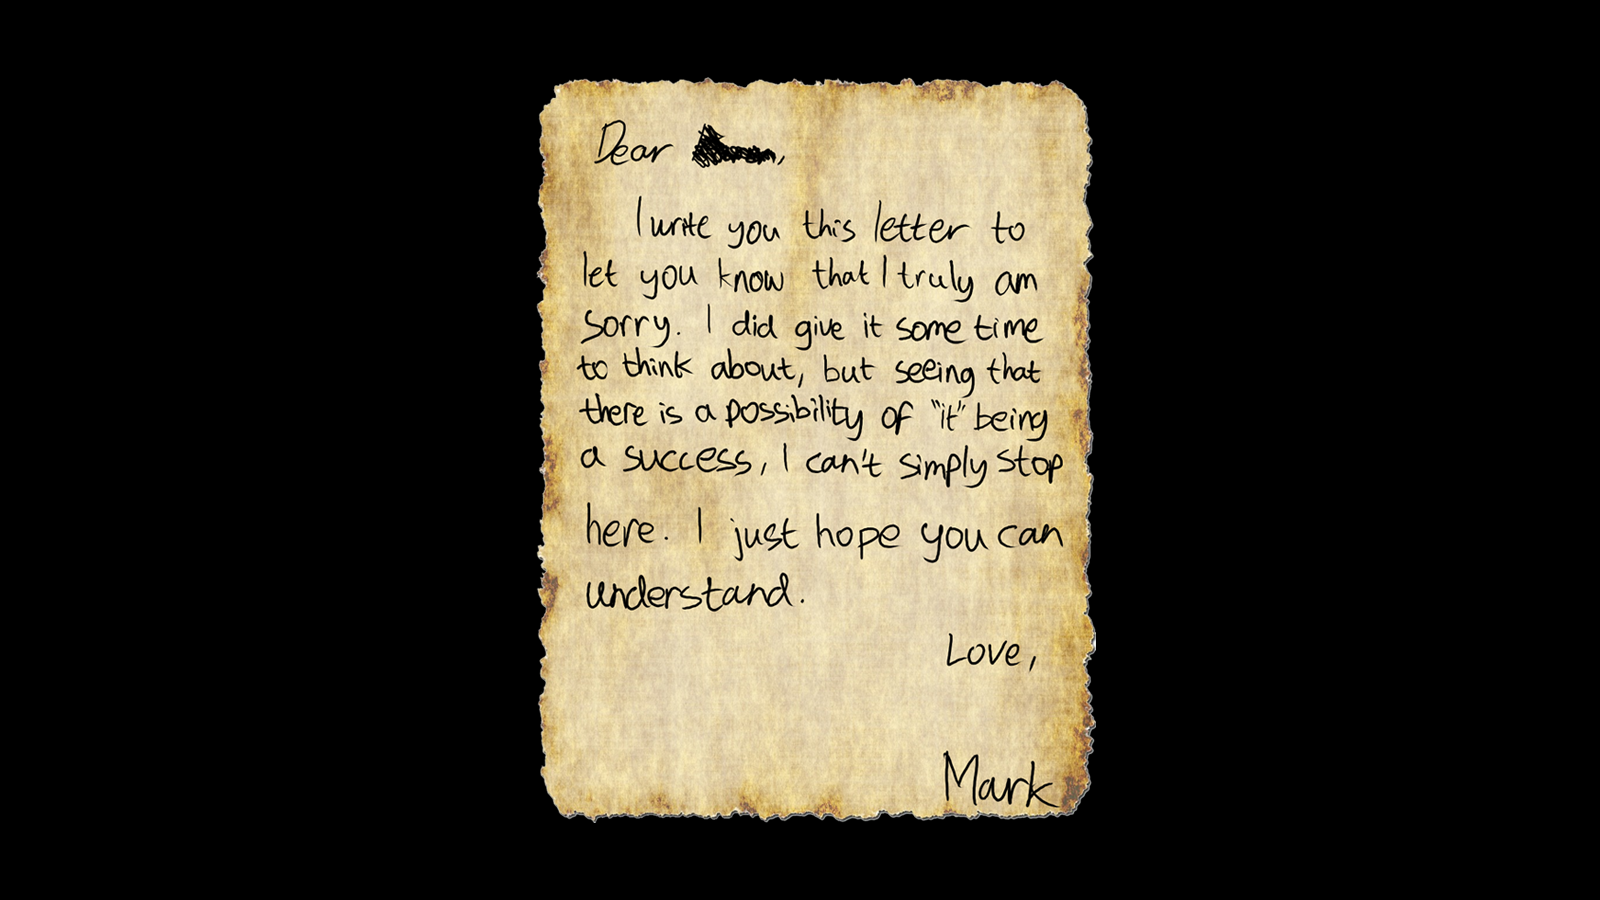 Dear ,
I write you this letter to
let you know that I truly am
sorry. I did give it some time
to think about, but seeing that
there is a possibility of "it" being
a success, I can't simply stop
here. I just hope you can
understand.
Love,
Mark